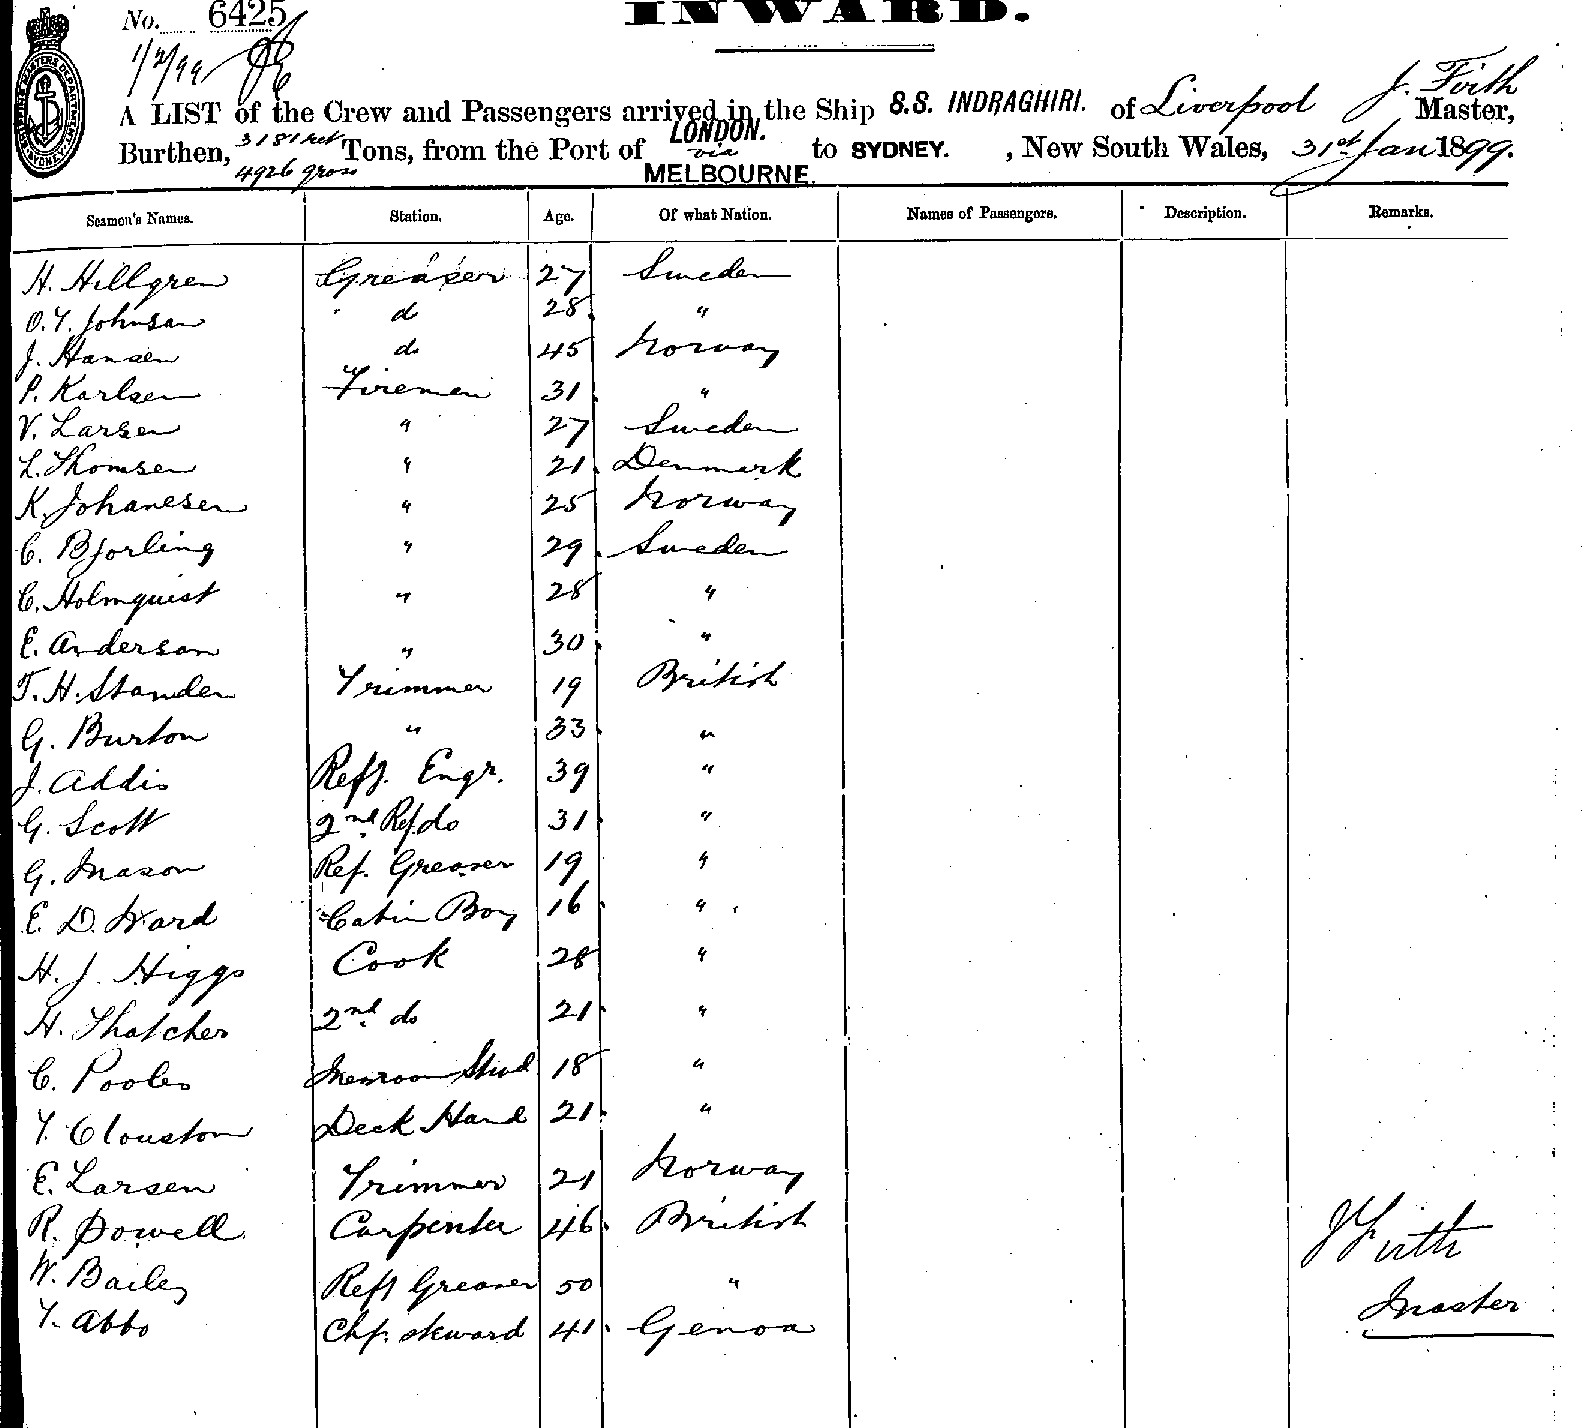 No. 6425
INWARD.
1/2/99
A LIST of the Crew and Passengers arrived in the Ship S.S. INDRAGHIRI. of Liverpool J. Firth Master,
Burthen, 3181 net 4926 gross Tons, from the Port of LONDON. via MELBOURNE. to SYDNEY. , New South Wales, 31st Jan 1899.
Seamen's Names. Station. Age. Of what Nation. Names of Passengers. Description. Remarks.
H. Hillgren Greaser 27 Sweden
O.T. Johnson do 28 "
J. Hansen do 45 Norway
P. Karlsen Firemen 31 "
V. Larsen " 27 Sweden
L. Thomsen " 21 Denmark
K. Johanesen " 25 Norway
C. Bjorling " 29 Sweden
C. Holmquist " 28 "
E. Anderson " 30 "
T. H. Standen Trimmer 19 British
G. Burton " 33 "
J. Addis Refg. Engr. 39 "
G. Scott 2nd Ref do 31 "
G. Mason Ref. Greaser 19 "
E. D. Ward Cabin Boy 16 "
H. J. Higgs Cook 28 "
H. Thatcher 2nd do 21 "
C. Pooles Messroom Stwd 18 "
T. Clouston Deck Hand 21 "
E. Larsen Trimmer 21 Norway
R. Powell Carpenter 46 British
W. Bailey Refg Greaser 50 "
T. Abbo Chf. steward 41 Genoa
J Firth
Master